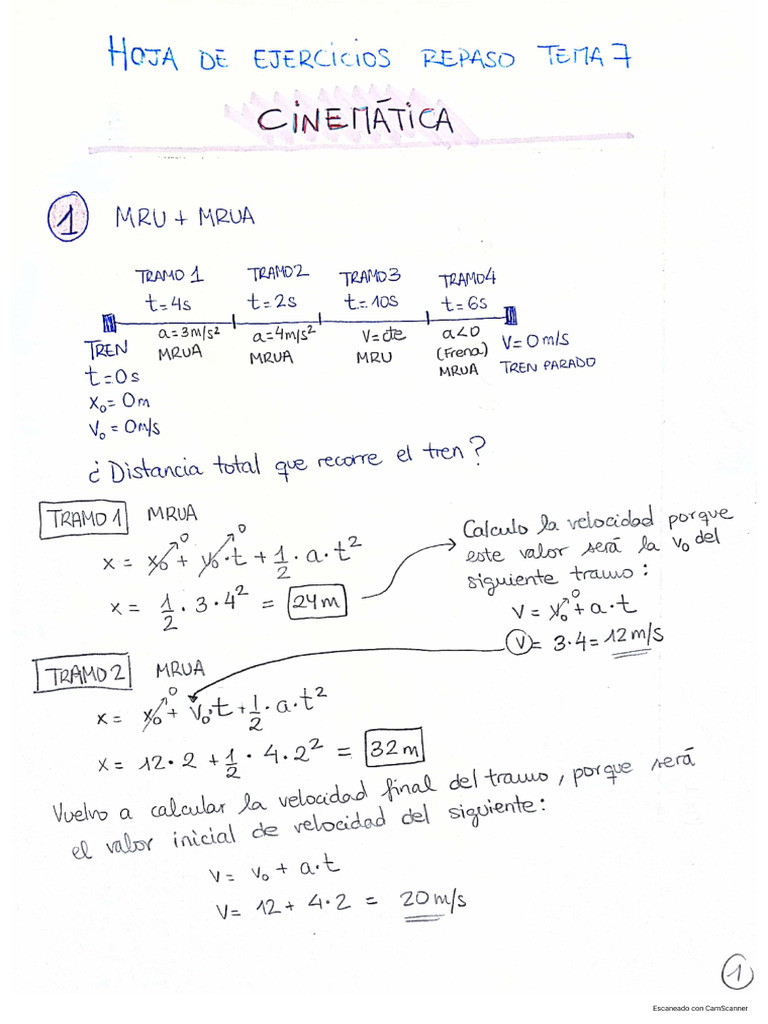 HOJA DE EJERCICIOS REPASO TEMA 7
CINEMÁTICA
1 MRU + MRUA
TRAMO 1 TRAMO2 TRAMO3 TRAMO4
t=4s t=2s t=10s t=6s
a=3m/s² a=4m/s² v=cte a<0 v=0m/s
MRUA MRUA MRU (Frena) TREN PARADO
MRUA
TREN
t=0s
x₀=0m
v₀=0m/s
¿Distancia total que recorre el tren?
TRAMO 1 MRUA
x = x₀ + v₀·t + 1/2 · a·t²
0 0
x = 1/2 · 3·4² = 24m
Calculo la velocidad porque
este valor será la v₀ del
siguiente tramo:
v = v₀ + a·t
0
v = 3·4 = 12m/s
TRAMO 2 MRUA
x = x₀ + v₀·t + 1/2 · a·t²
0
x = 12·2 + 1/2 · 4·2² = 32m
Vuelvo a calcular la velocidad final del tramo, porque será
el valor inicial de velocidad del siguiente:
v = v₀ + a·t
v = 12 + 4·2 = 20m/s
1
Escaneado con CamScanner